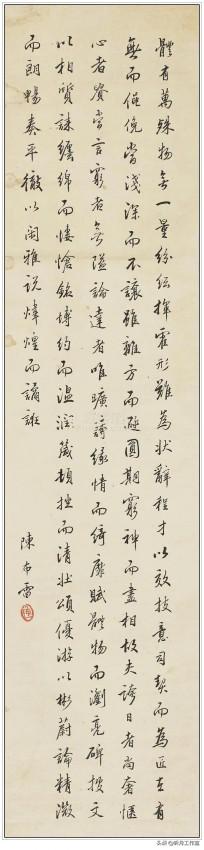 體有萬殊物無一量紛紜揮霍形難為狀辭程才以效技意司契而為匠在有
無而僶俛當淺深而不讓雖離方而遯圓期窮神而盡相故夫誇目者尚奢愜
心者貴當言窮者無隘論達者唯曠詩緣情而綺靡賦體物而瀏亮碑披文
以相質誄纏綿而悽愴銘博約而溫潤箴頓挫而清壯頌優游以彬蔚論精微
而朗暢奏平徹以閑雅說煒燁而譎誑
陳布雷
头条 @月工作室